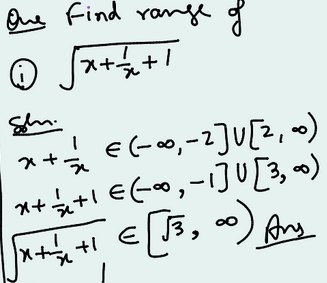 Que Find range of
① √(x+1/x+1)
Soln.
x+1/x ∈ (-∞,-2]∪[2,∞)
x+1/x+1 ∈ (-∞,-1]∪[3,∞)
√(x+1/x+1) ∈ [√3, ∞) Ans